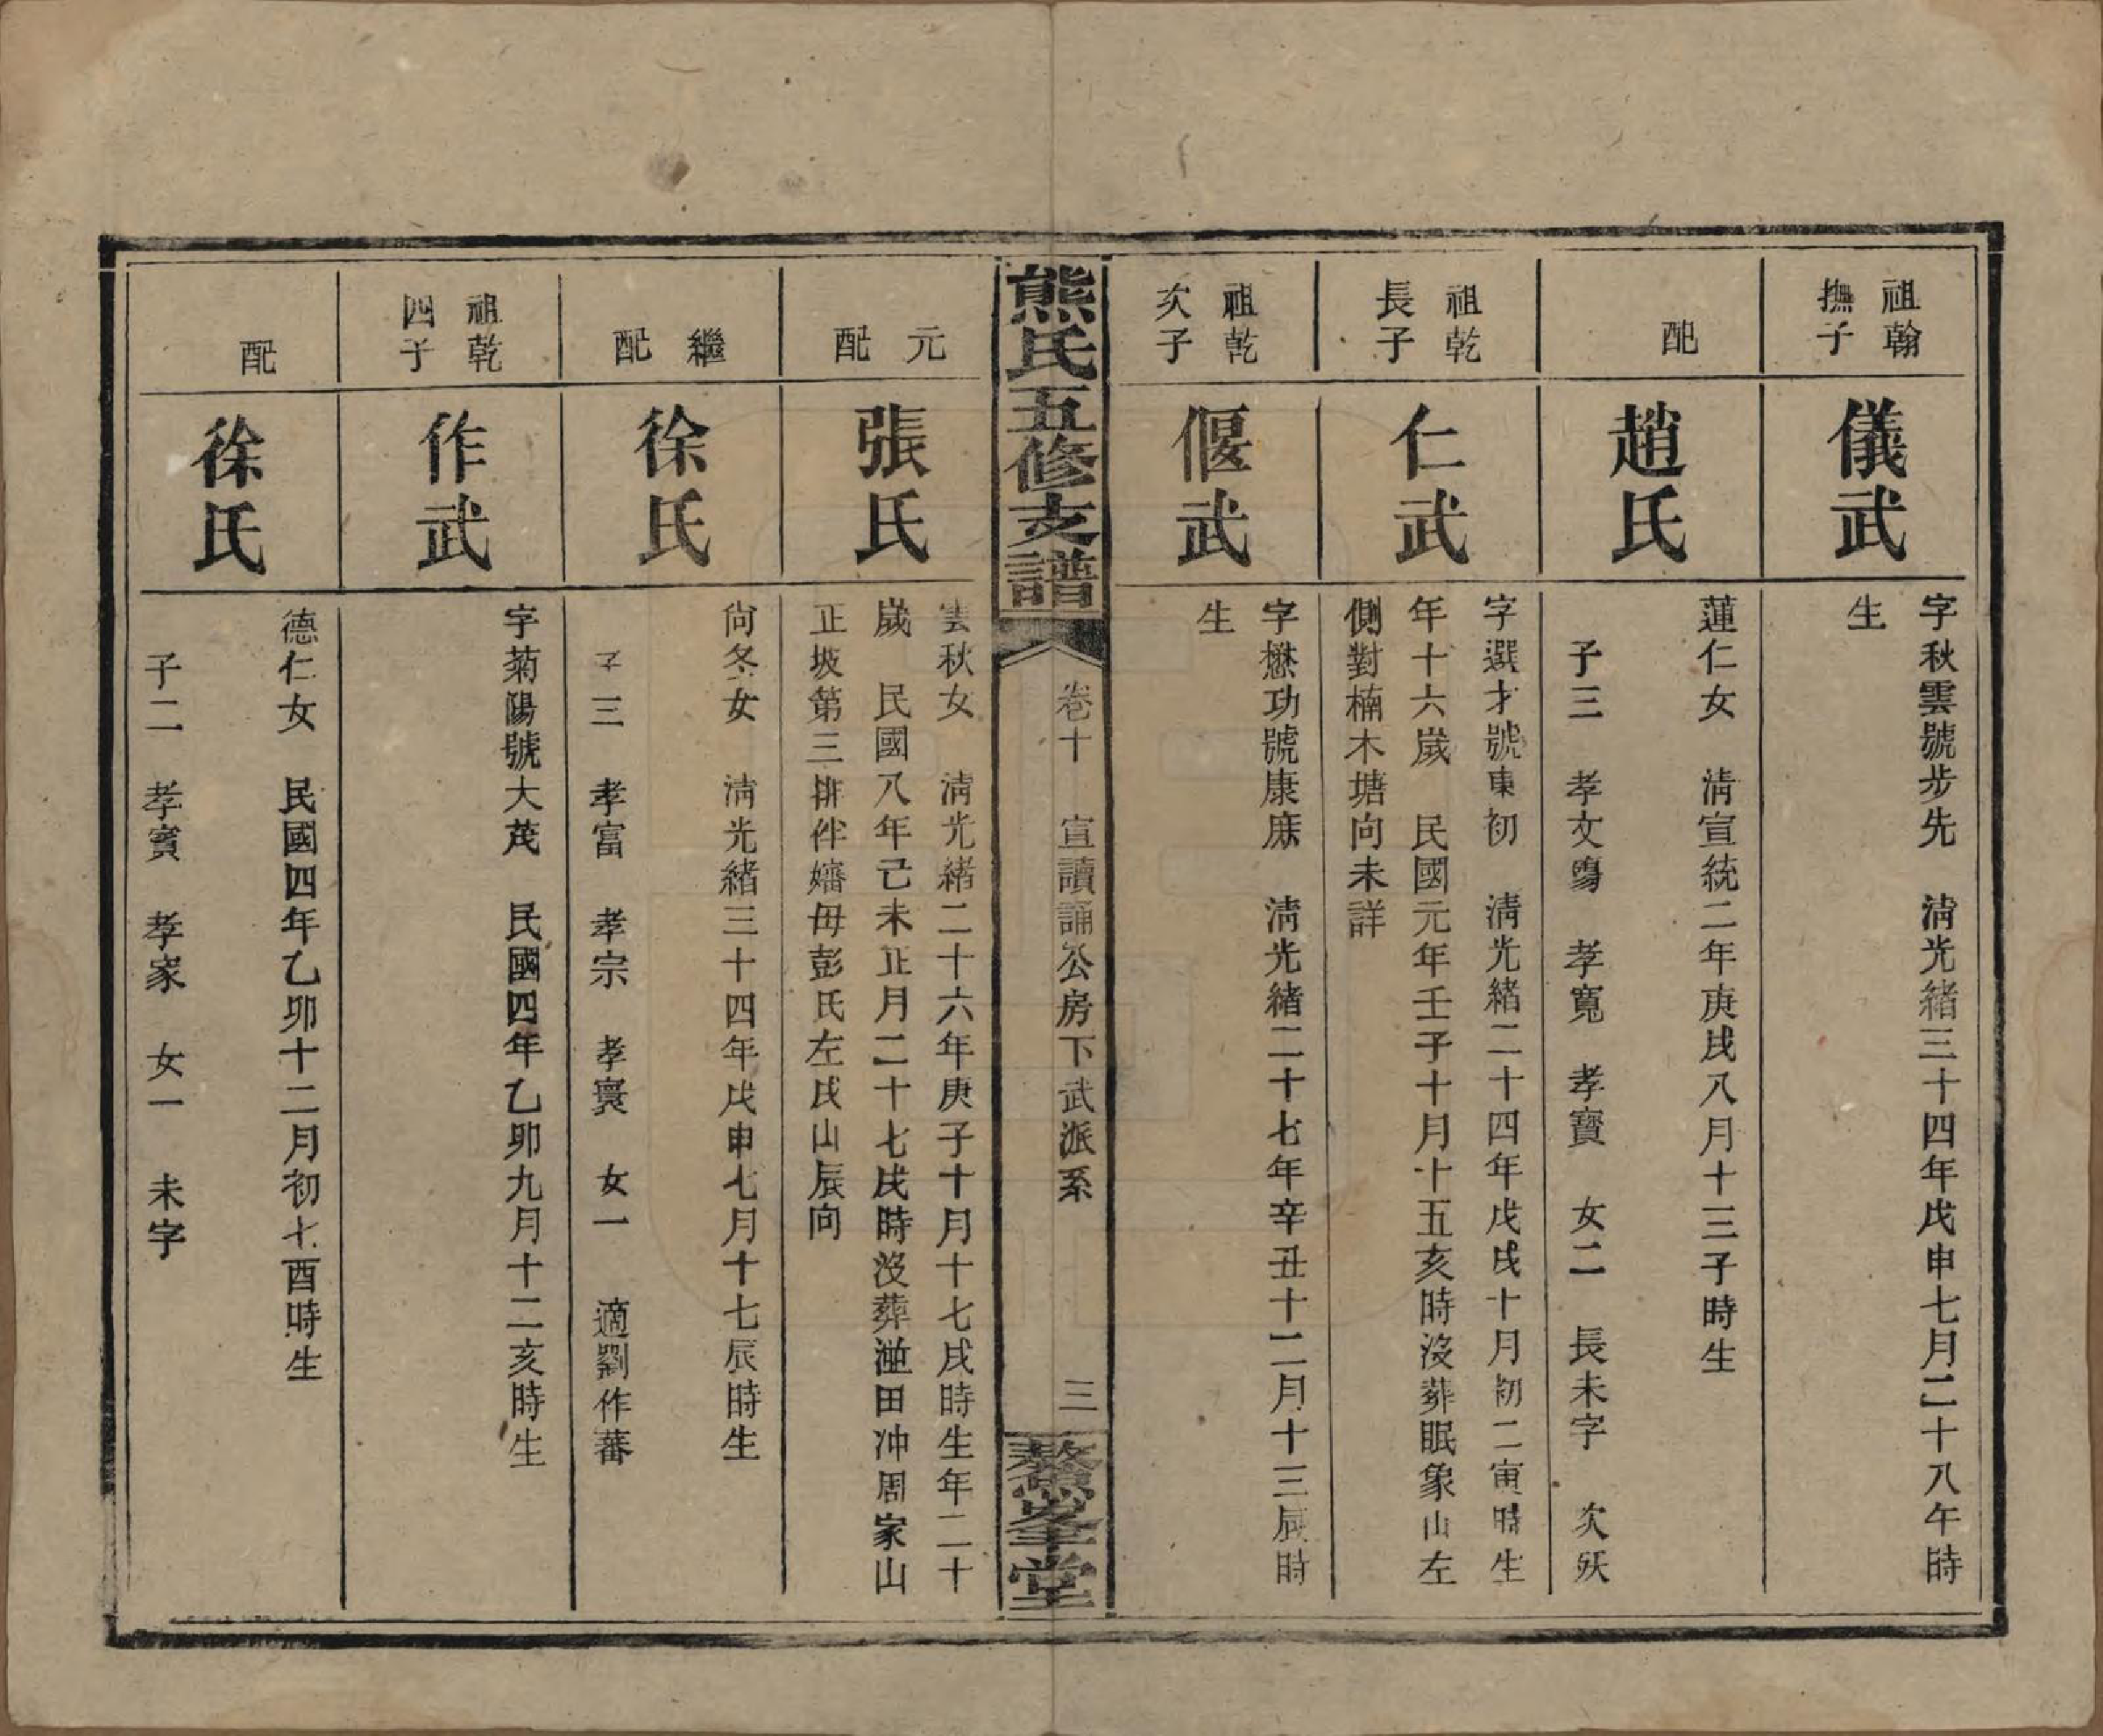 祖翰
撫子
儀武
字秋雲號步先　清光緒三十四年戊申七月二十八午時
生
配
趙氏
蓮仁女　清宣統二年庚戌八月十三子時生
子三　孝文殤　孝寬　孝寶　女二　長未字　次殀
祖乾
長子
仁武
字選才號東初　清光緒二十四年戊戌十月初二寅時生
年十六歲　民國元年壬子十月十五亥時沒葬眠象山左
側對楠木塘向未詳
祖乾
次子
偃武
字懋功號康庶　清光緒二十七年辛丑十二月十三辰時
生
熊氏五修支譜
卷十　宣讀誦公房下武派系　三
鰲峯堂
元
配
張氏
雲秋女　清光緒二十六年庚子十月十七戌時生年二十
歲　民國八年己未正月二十七戌時沒葬湴田冲周家山
正坡第三排伴嬸母彭氏左戌山辰向
繼
配
徐氏
尙冬女　清光緒三十四年戊申七月十七辰時生
子三　孝富　孝宗　孝寰　女一　適劉作蕃
祖乾
四子
作武
字菊陽號大茂　民國四年乙卯九月十二亥時生
配
徐氏
德仁女　民國四年乙卯十二月初七酉時生
子二　孝賓　孝家　女一　未字